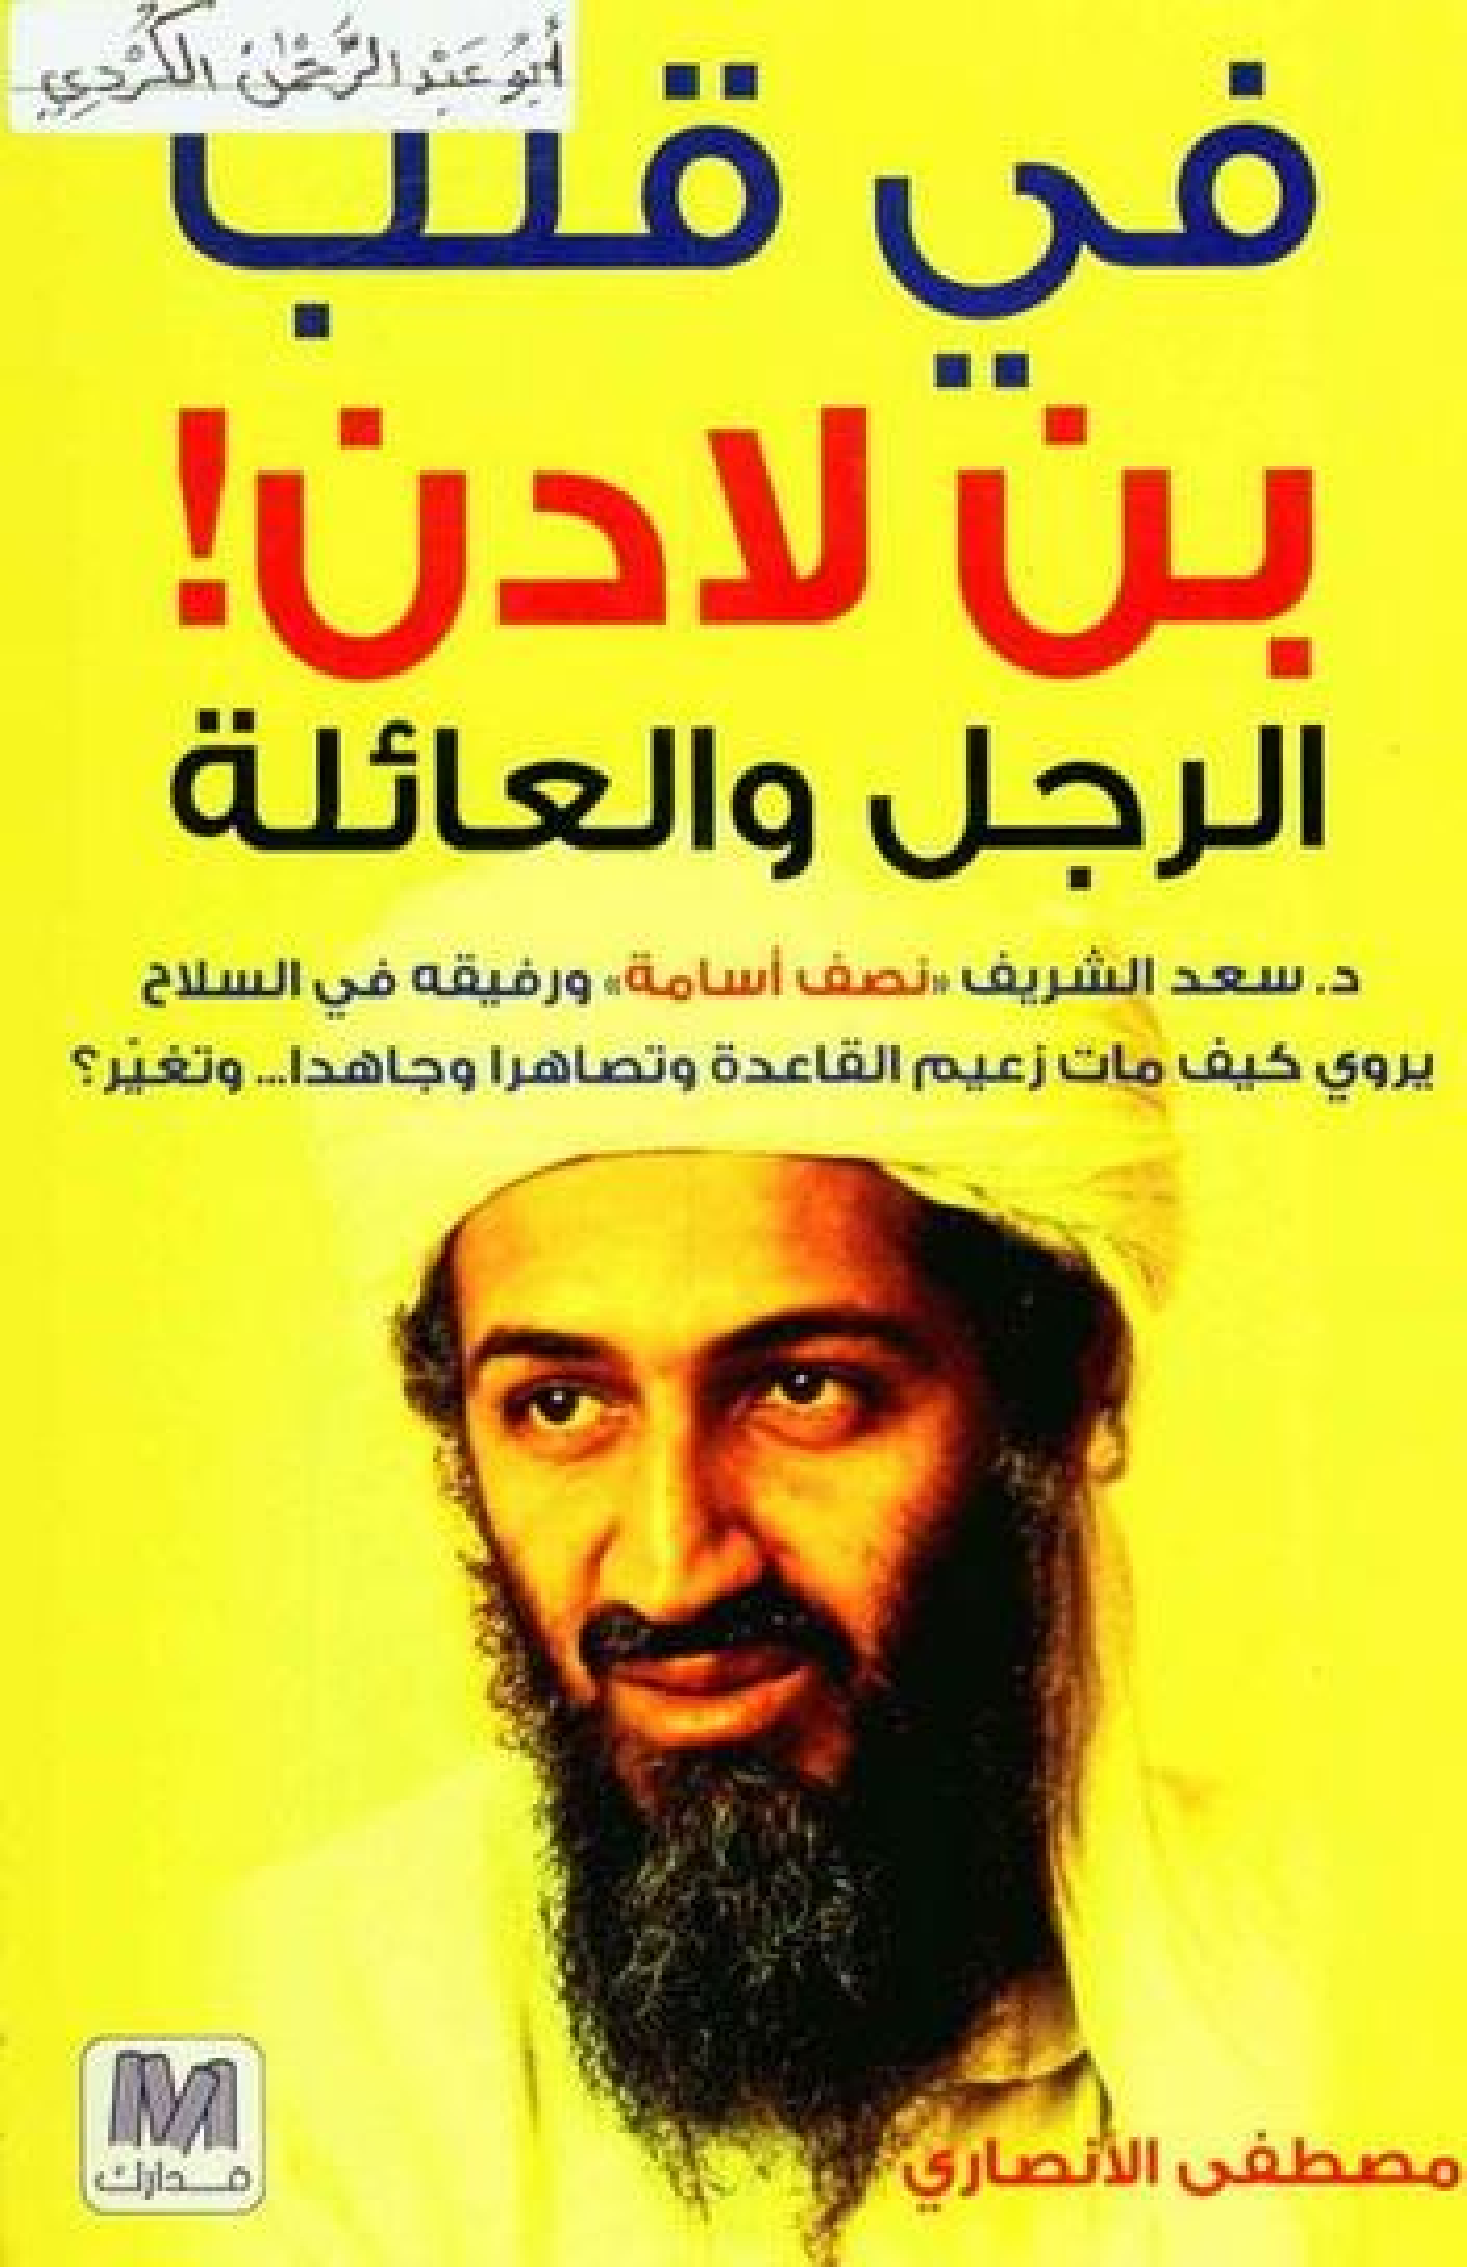 أَبُو عَبْد الرَّحْمٰن الكُرْدِي
في قلب
بن لادن!
الرجل والعائلة
د. سعد الشريف «نصف أسامة» ورفيقه في السلاح
يروي كيف مات زعيم القاعدة وتصاهرا وجاهدا... وتغيّر؟
مصطفى الأنصاري
مدارك